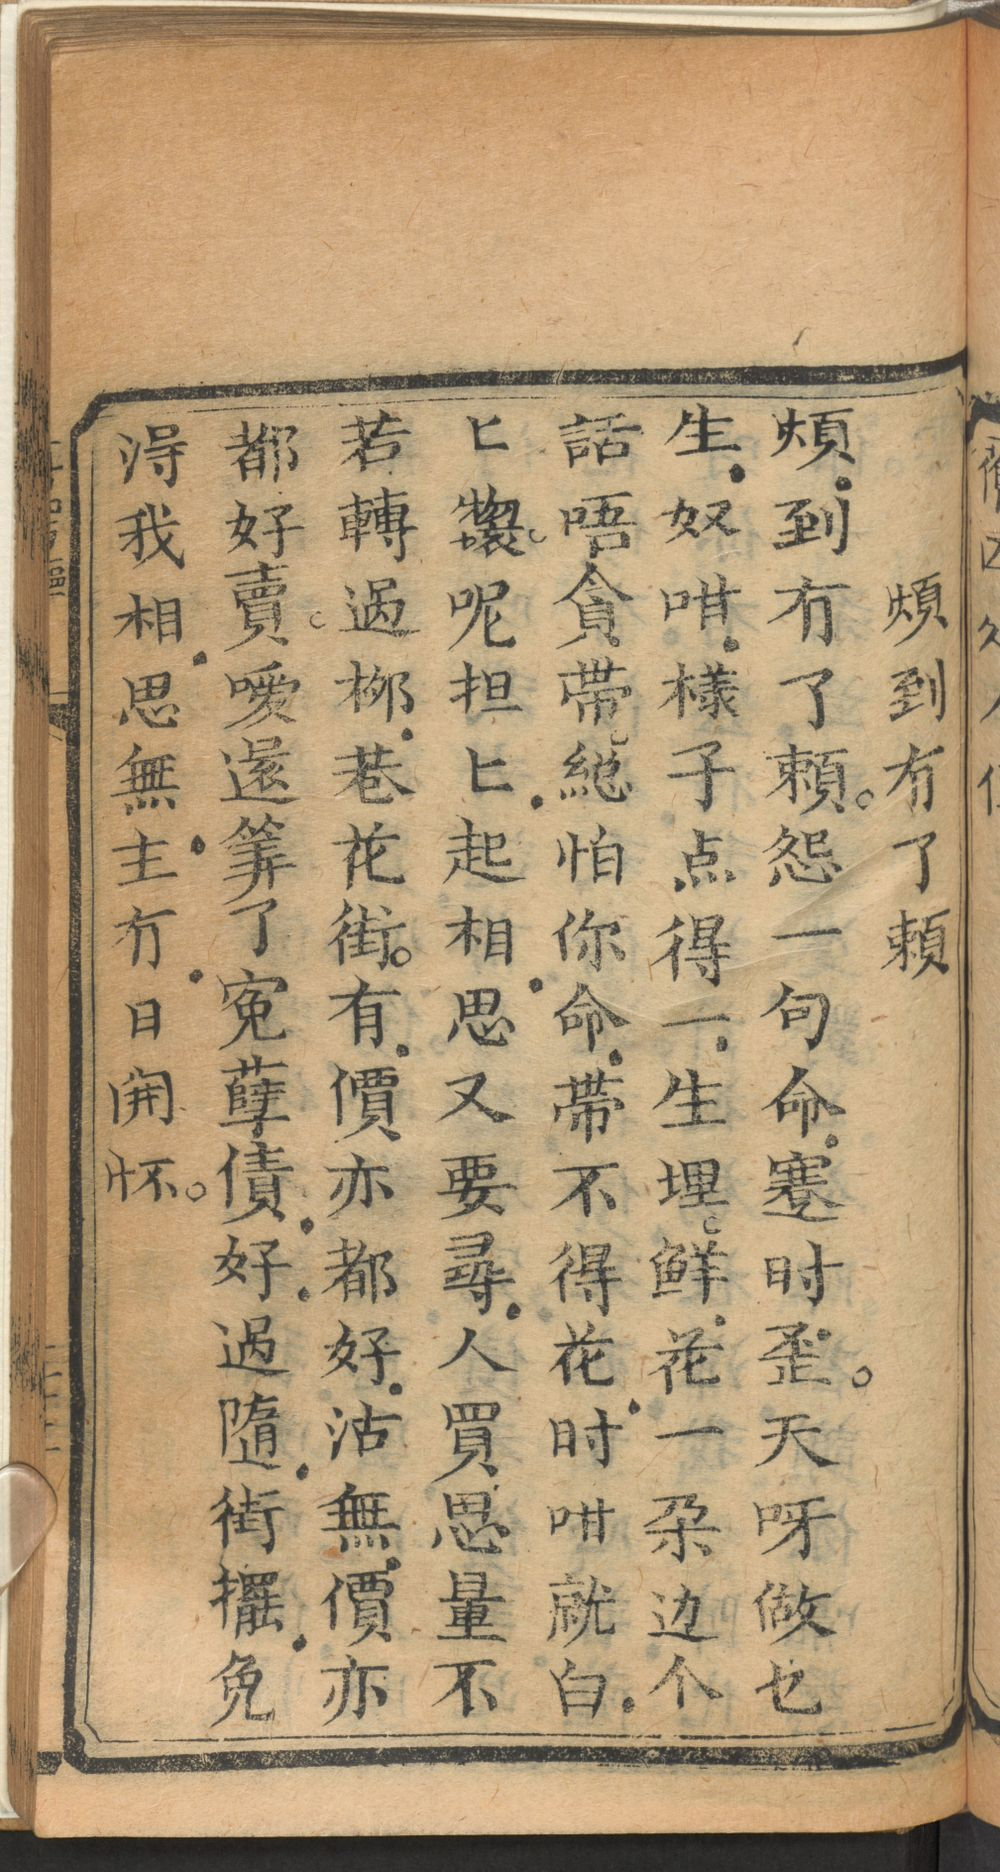 煩到冇了賴
煩到冇了賴。怨一句命蹇时歪。天呀做乜
生奴咁樣子点得一生埋鲜花一朶边个
話唔貪帶総怕你命帶不得花时咁就白
匕　呢担匕起相思又要尋人買思量不
若轉過柳巷花街。有價亦都好沽無價亦
都好賣嗳還筭了寃孽債好過隨街擺免
淂我相思無主冇日開怀。